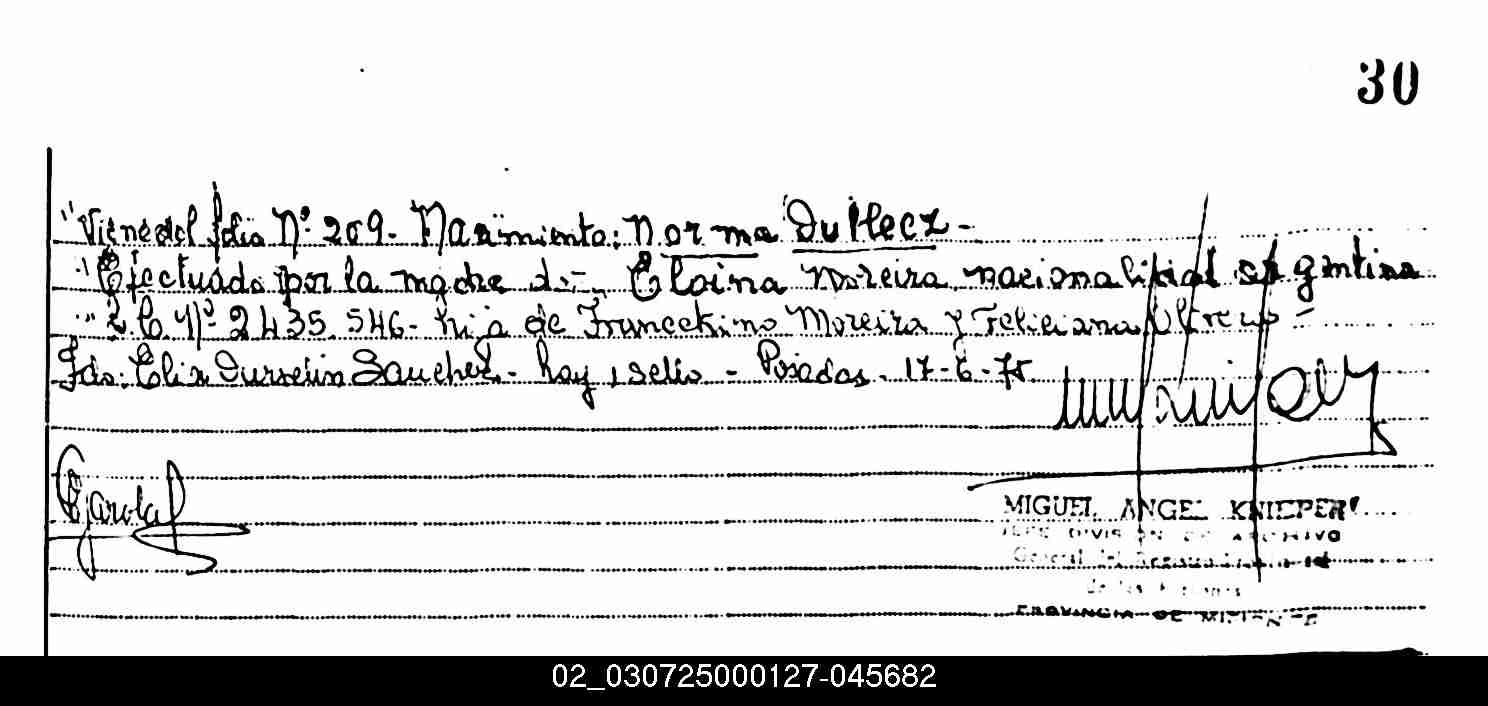 30
"Viene del folio Nº 209- Nacimiento: Norma Dutlecz -
" Efectuado por la madre d:- Eloina Moreira nacionalidad argentina
" L.C. Nº 2.435.546- hija de Francchino Moreira y Feliciana
Fdo: Elix Sanchez - hay 1 sello - Posadas - 17-6-75
MIGUEL ANGEL KNIEPER
JEFE DIVISION DE ARCHIVO
General del Registro
de las Personas
PROVINCIA DE MISIONES
02_030725000127-045682